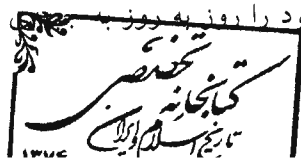 د را روز به روز به
کتابخانه تخصصی
تاریخ اسلام و ایران
۱۳۷۶